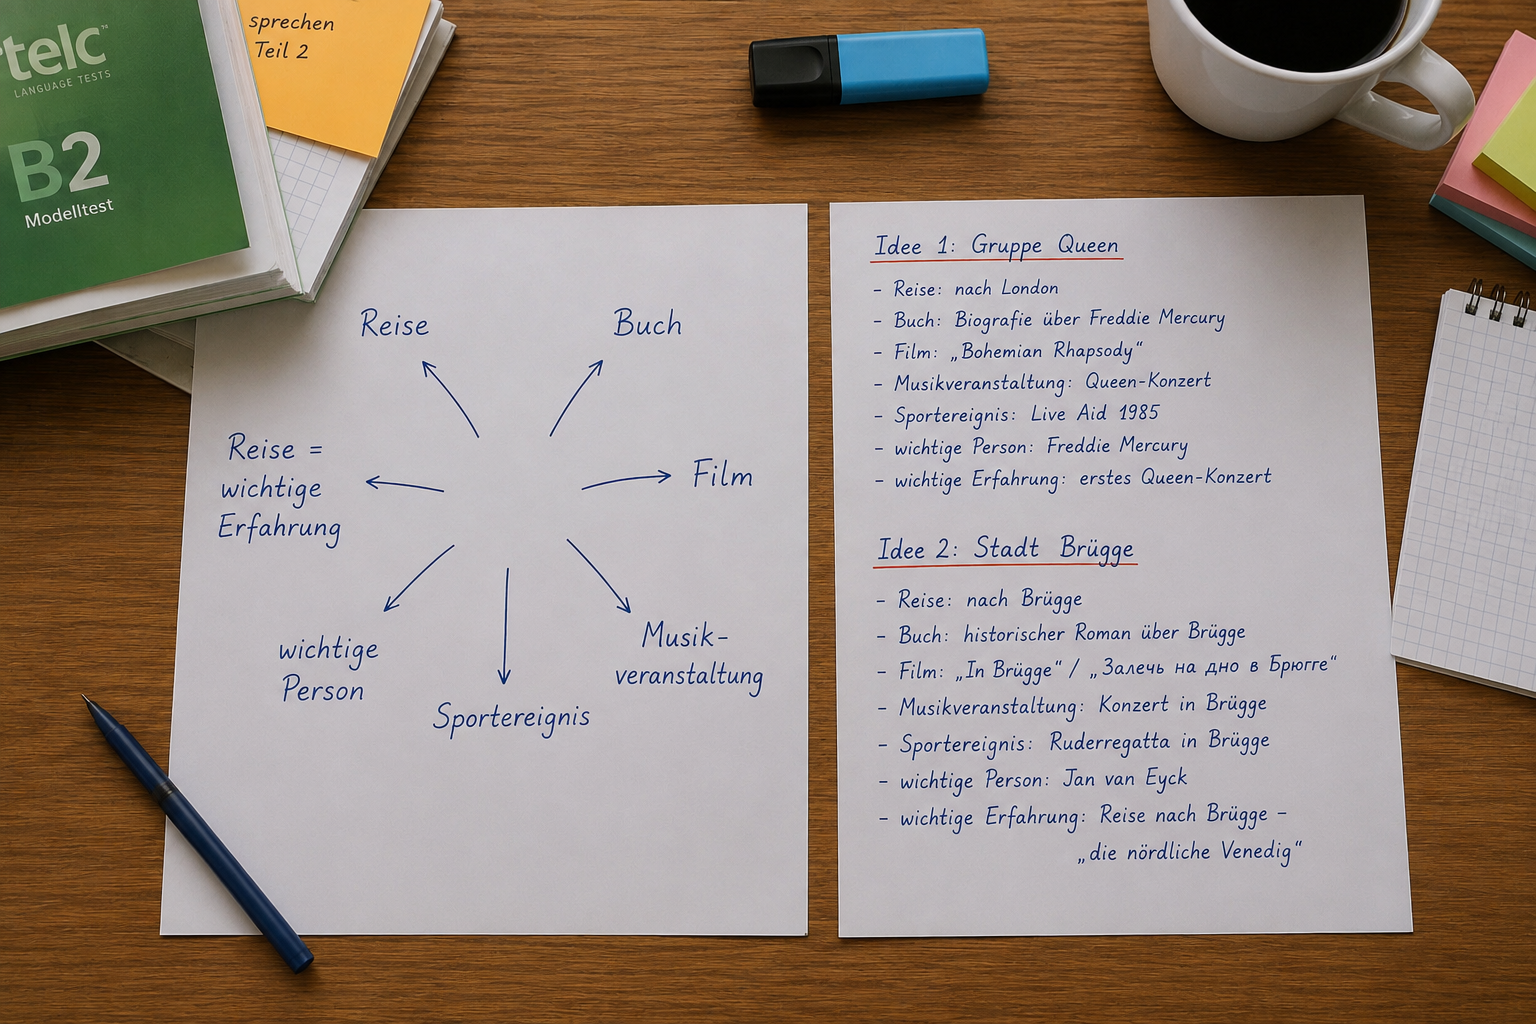 telc
LANGUAGE TESTS
B2
Modelltest
sprechen
Teil 2
Reise
Buch
Reise =
wichtige
Erfahrung
Film
wichtige
Person
Musik-
veranstaltung
Sportereignis
Idee 1: Gruppe Queen
- Reise: nach London
- Buch: Biografie über Freddie Mercury
- Film: „Bohemian Rhapsody“
- Musikveranstaltung: Queen-Konzert
- Sportereignis: Live Aid 1985
- wichtige Person: Freddie Mercury
- wichtige Erfahrung: erstes Queen-Konzert
Idee 2: Stadt Brügge
- Reise: nach Brügge
- Buch: historischer Roman über Brügge
- Film: „In Brügge“ / „Залечь на дно в Брюгге“
- Musikveranstaltung: Konzert in Brügge
- Sportereignis: Ruderregatta in Brügge
- wichtige Person: Jan van Eyck
- wichtige Erfahrung: Reise nach Brügge –
„die nördliche Venedig“